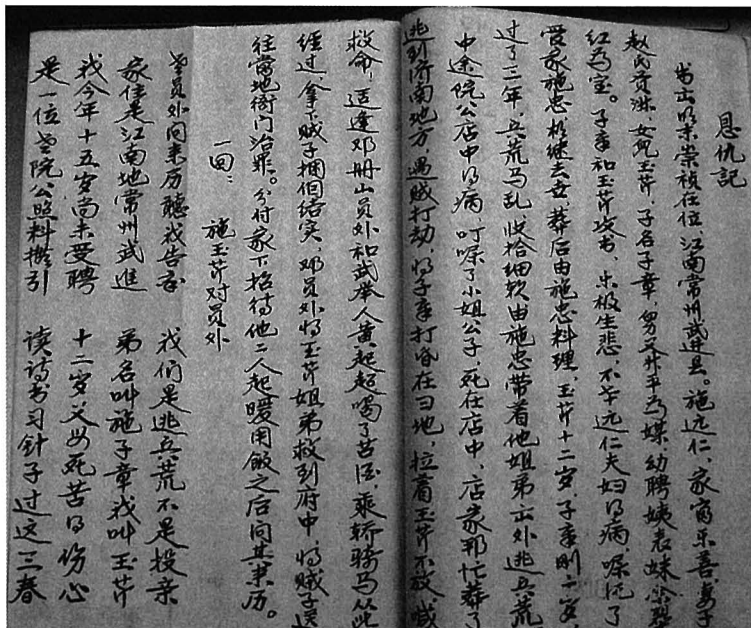 恩仇記
书出明末崇祯在位，江南常州武进县。施远仁，家富乐善，妻子
赵氏贡淋，女儿玉芹，子名子章，舅父升平为媒幼聘姨表妹
红为宝。子章和玉芹攻书，乐极生悲，不幸远仁夫妇得病，嘱托了
管家施忠相继去世，葬后由施忠料理，玉芹十二岁，子章刚二岁，
过了三年，兵荒马乱，收拾细软由施忠带着他姐弟出外逃兵荒
中途院公店中得病，叮嘱了小姐公子，死在店中，店家帮忙葬了
逃到济南地方，遇贼打劫，将子章打昏在旦地，拉着玉芹不放，喊
救命，适逢邓册山员外和武举人黄起超喝了苦酒，乘轿骑马从此
经过，拿下贼子捆但结实，邓员外将玉芹姐弟救到府中，将贼子送
往当地衙门治罪。分付家下招待他二人起暖用饭之后问其来历。
一回：　施玉芹对员外
老员外问来历听我告禀　我们是逃兵荒不是投亲
家住是江南地常州武进　弟名叫施子章我叫玉芹
我今年十五岁尚未受聘　十二岁父母死苦得伤心
是一位老院公照料携引　读诗书习针子过这三春